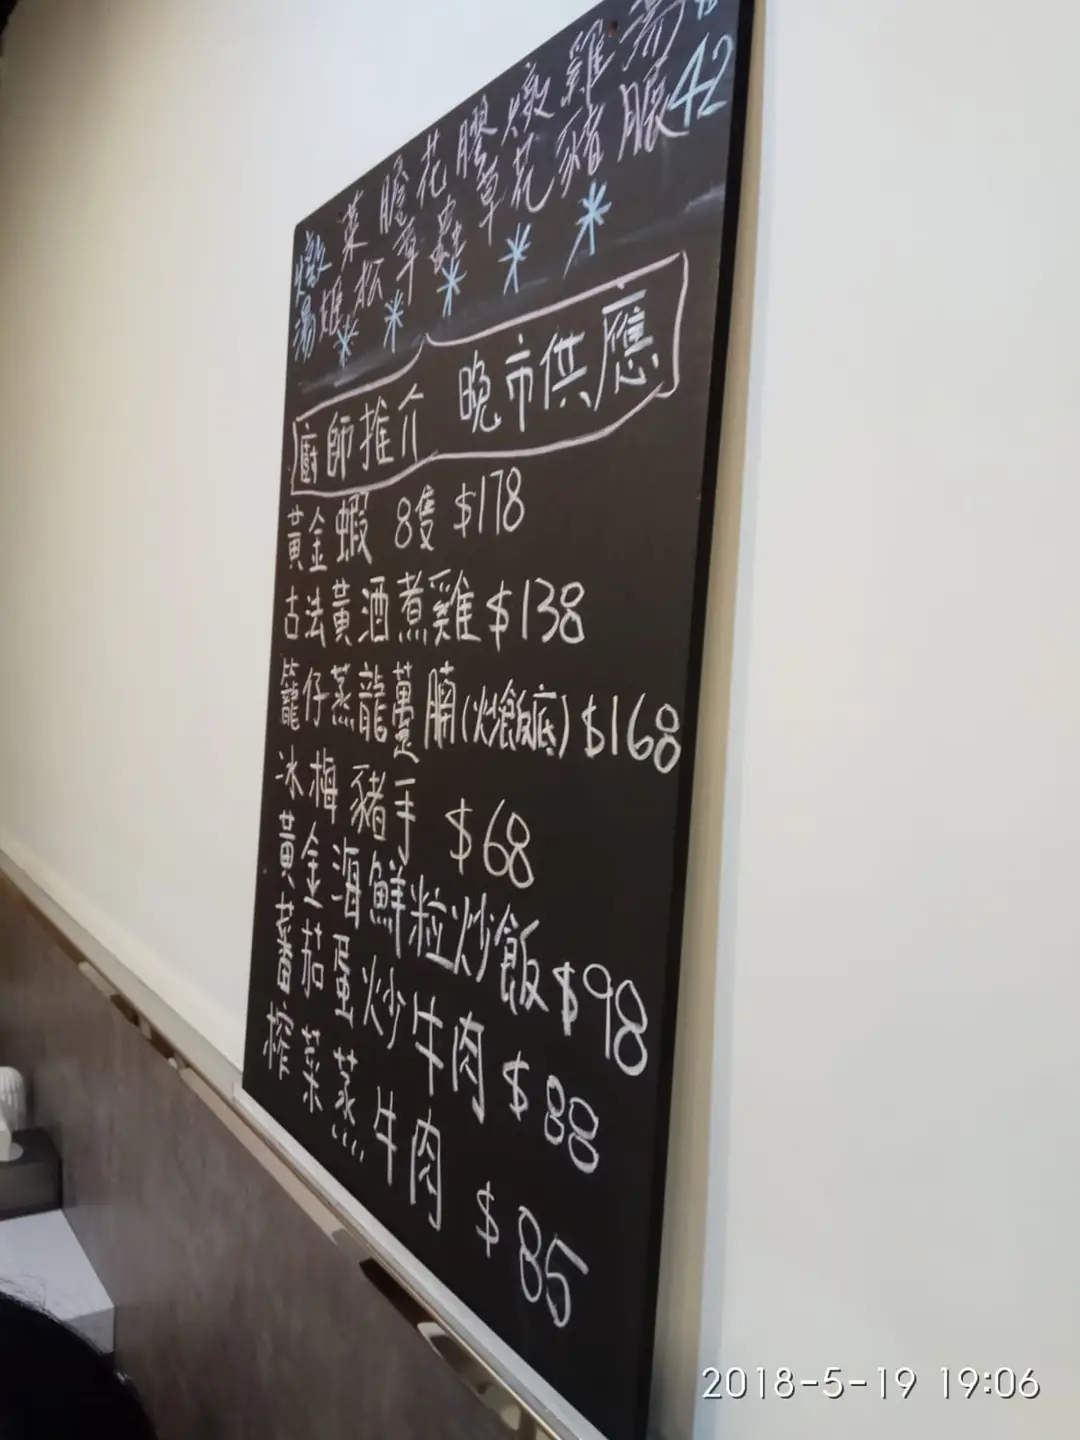 燉 菜膽花膠燉雞湯
湯 姬松茸蟲草花豬𦟌 42
廚師推介 晚市供應
黃金蝦 8隻 $178
古法黃酒煮雞 $138
籠仔蒸龍躉腩(炒飯底) $168
冰梅豬手 $68
黃金海鮮粒炒飯 $98
蕃茄蛋炒牛肉 $88
榨菜蒸牛肉 $85
2018-5-19 19:06